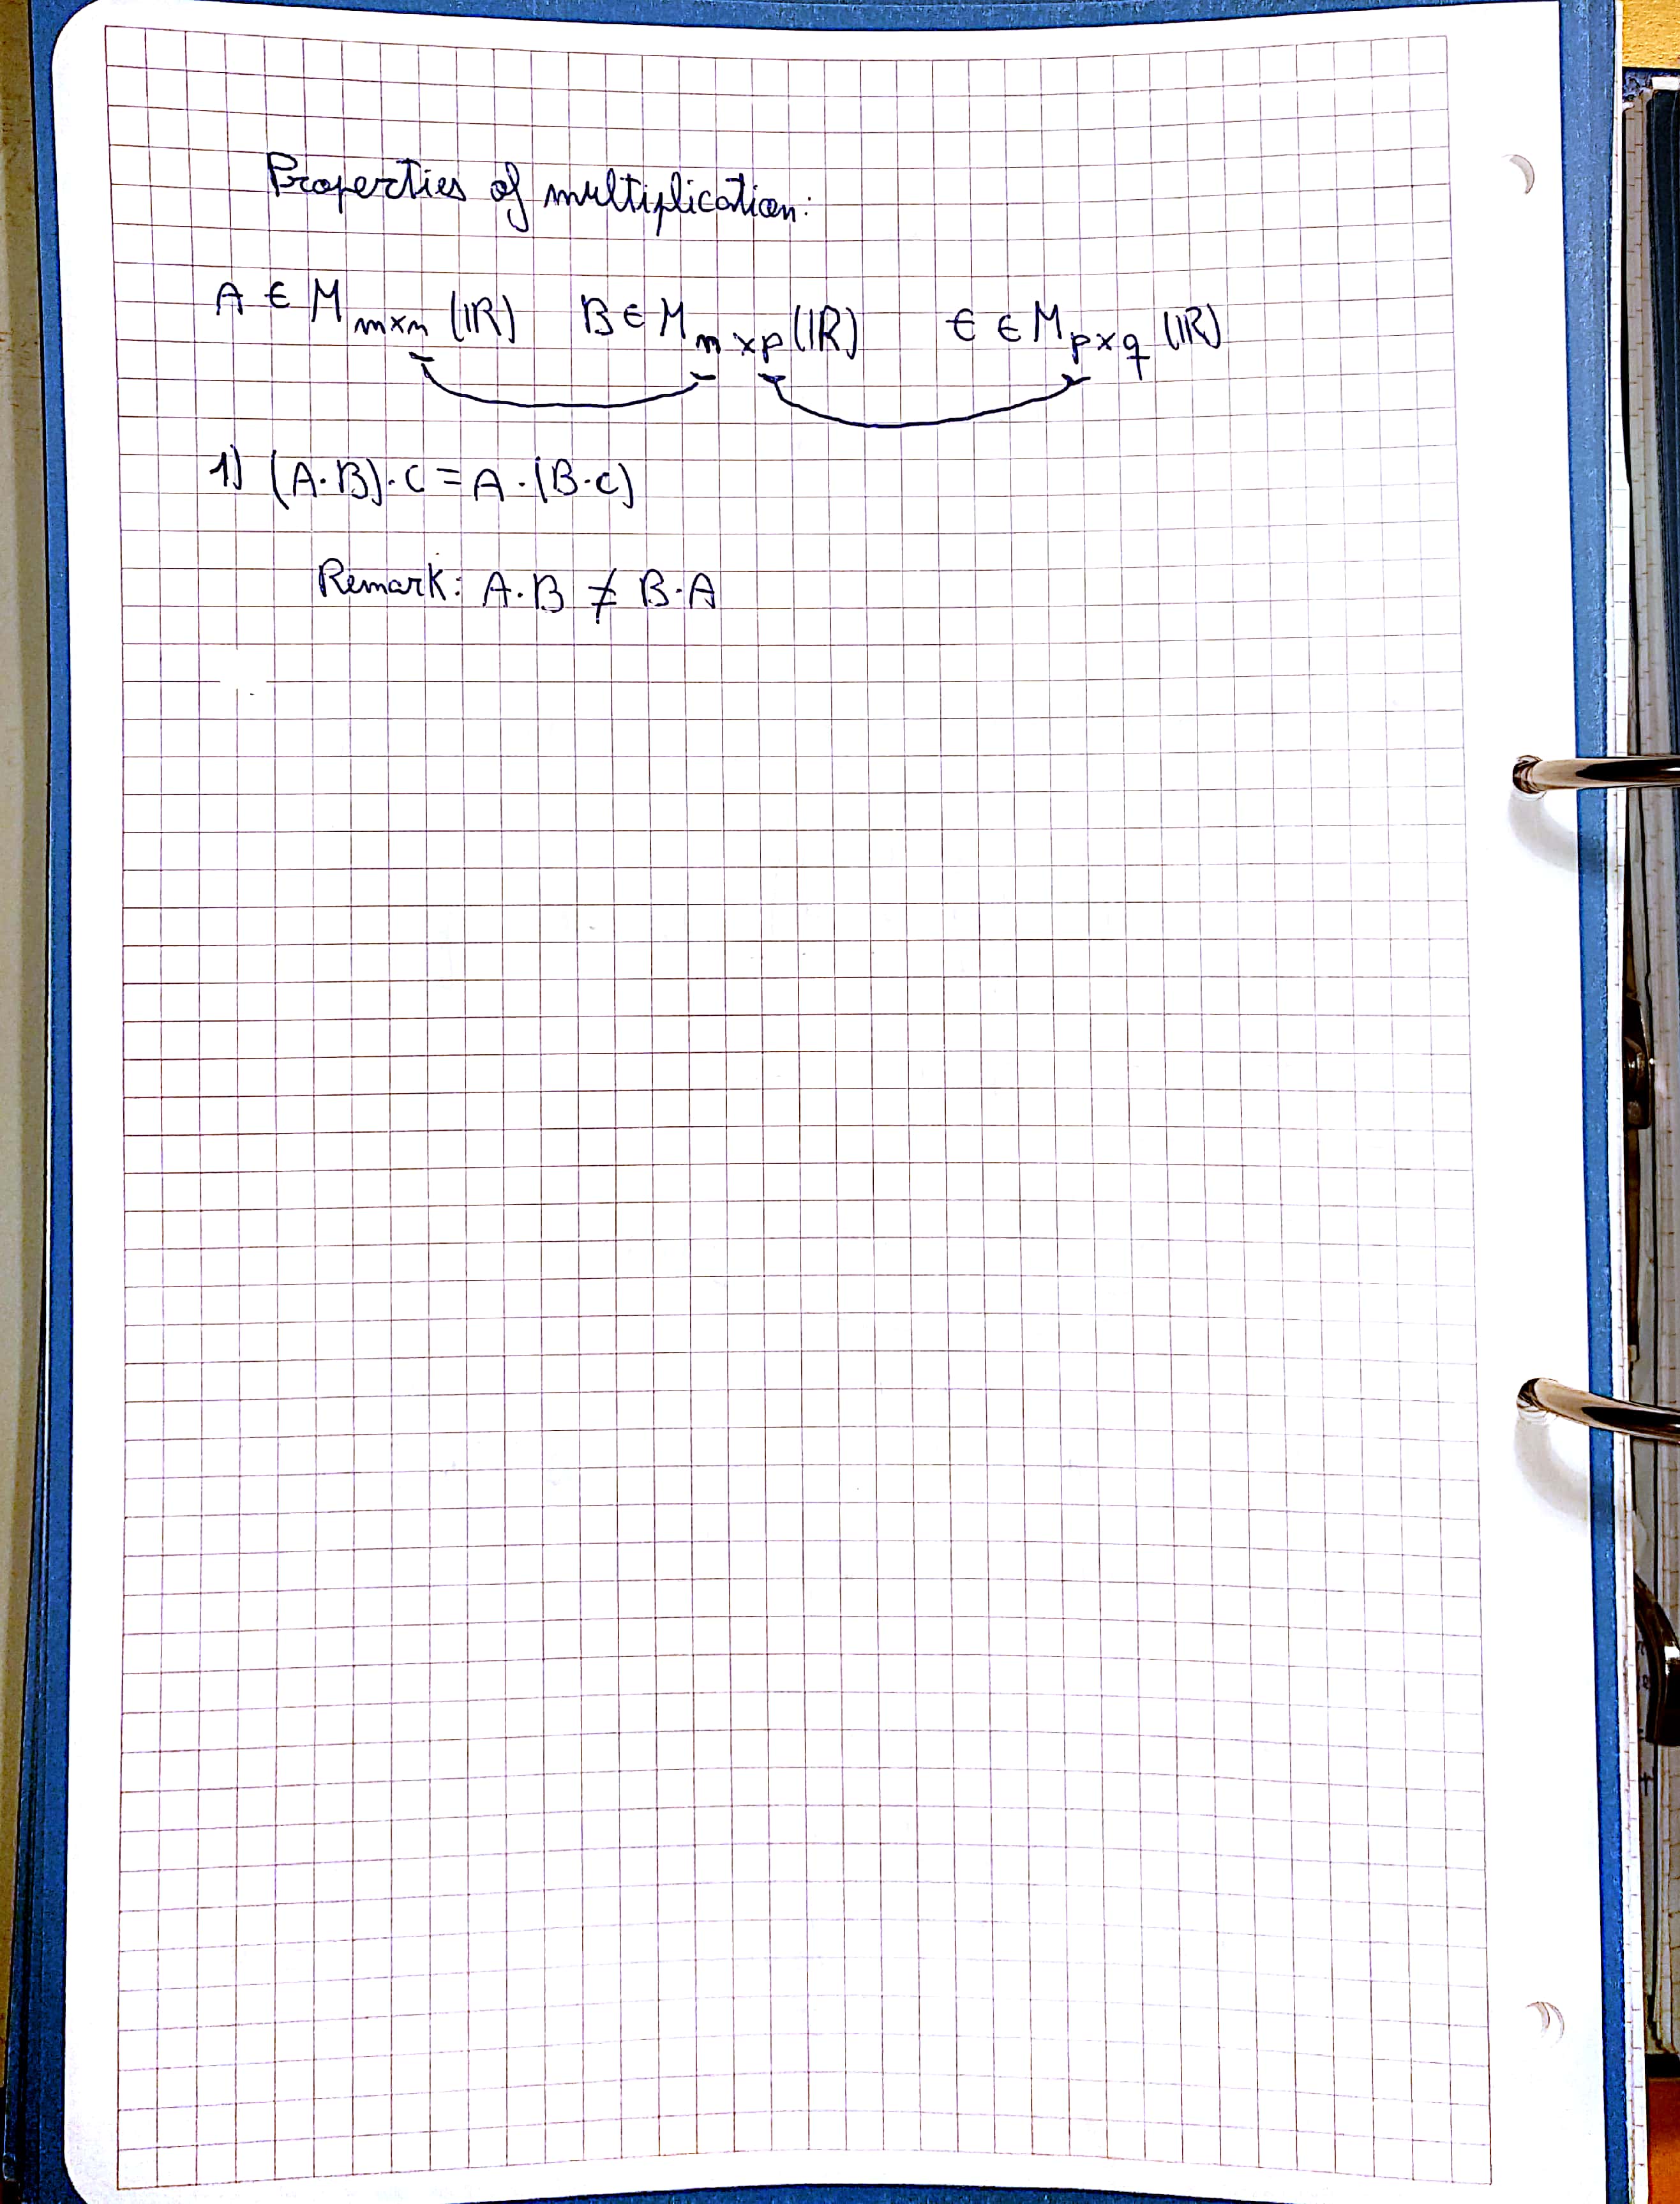 Properties of multiplication:
A ∈ M m×n (IR) B ∈ M n×p (IR) C ∈ M p×q (IR)
1) (A·B)·C = A·(B·C)
Remark: A·B ≠ B·A